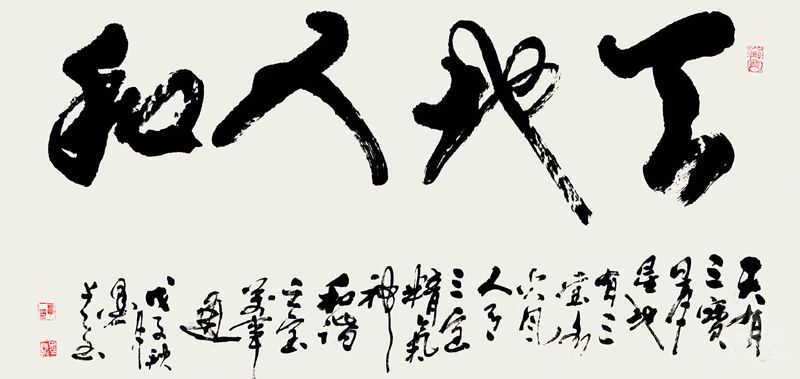 天地人和
天有
三寶
日月
星地
有三
寶水
火風
人有
三宝
精氣
神
和谐
三宝
萬年
戊子秋